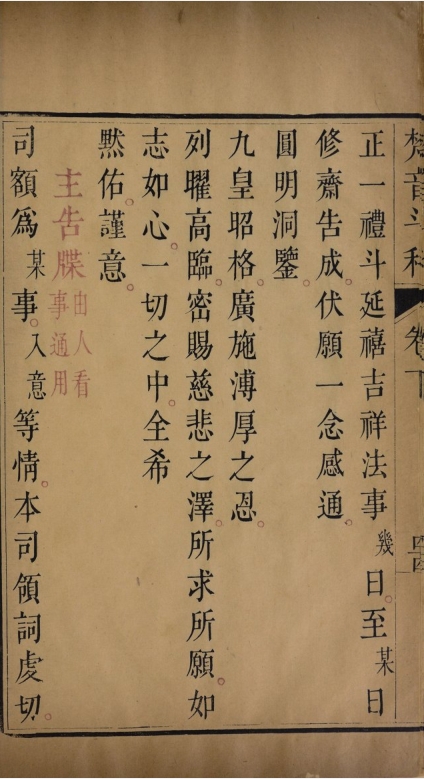 梵音斗科 卷下
正一禮斗延禧吉祥法事幾日。至某日
修齋告成。伏願一念感通。
圓明洞鑒。
九皇昭格。廣施溥厚之恩。
列曜高臨。密賜慈悲之澤。所求所願。如
志如心。一切之中。全希
默佑。謹意。
主告牒由人看事通用
司額爲某事。入意等情。本司領詞虔切。